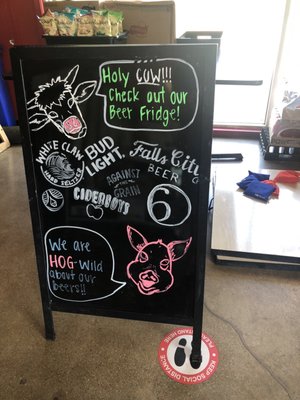 Holy COW!!!
Check out our
Beer Fridge!
WHITE CLAW
HARD SELTZER
BUD LIGHT.
Falls City
BEER
AGAINST
THE
GRAIN
CIDERBOYS
6
We are
HOG-Wild
about our
beers!!
PLEASE STAND HERE
KEEP SOCIAL DISTANCE